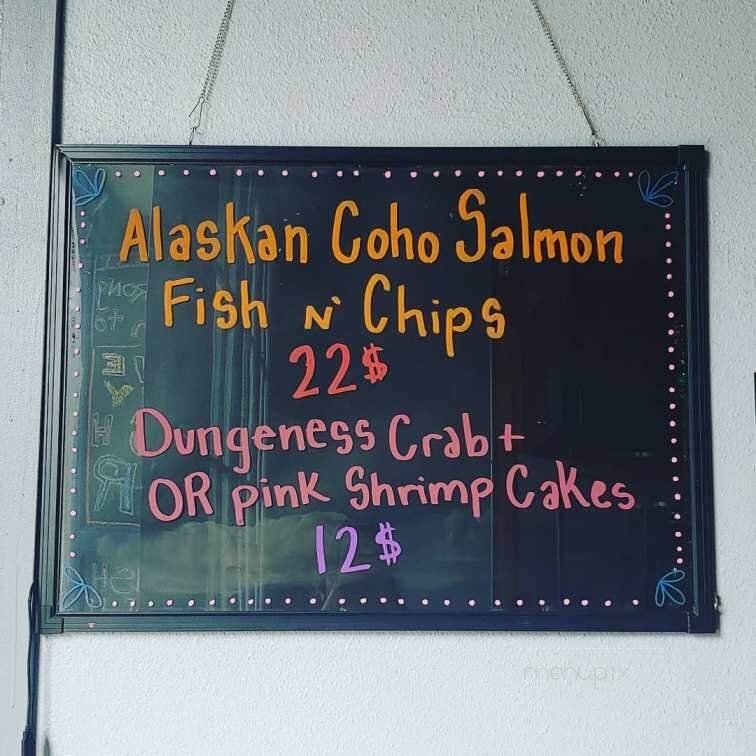 Alaskan Coho Salmon
Fish N' Chips
22$
Dungeness Crab +
OR pink Shrimp Cakes
12$
menupix